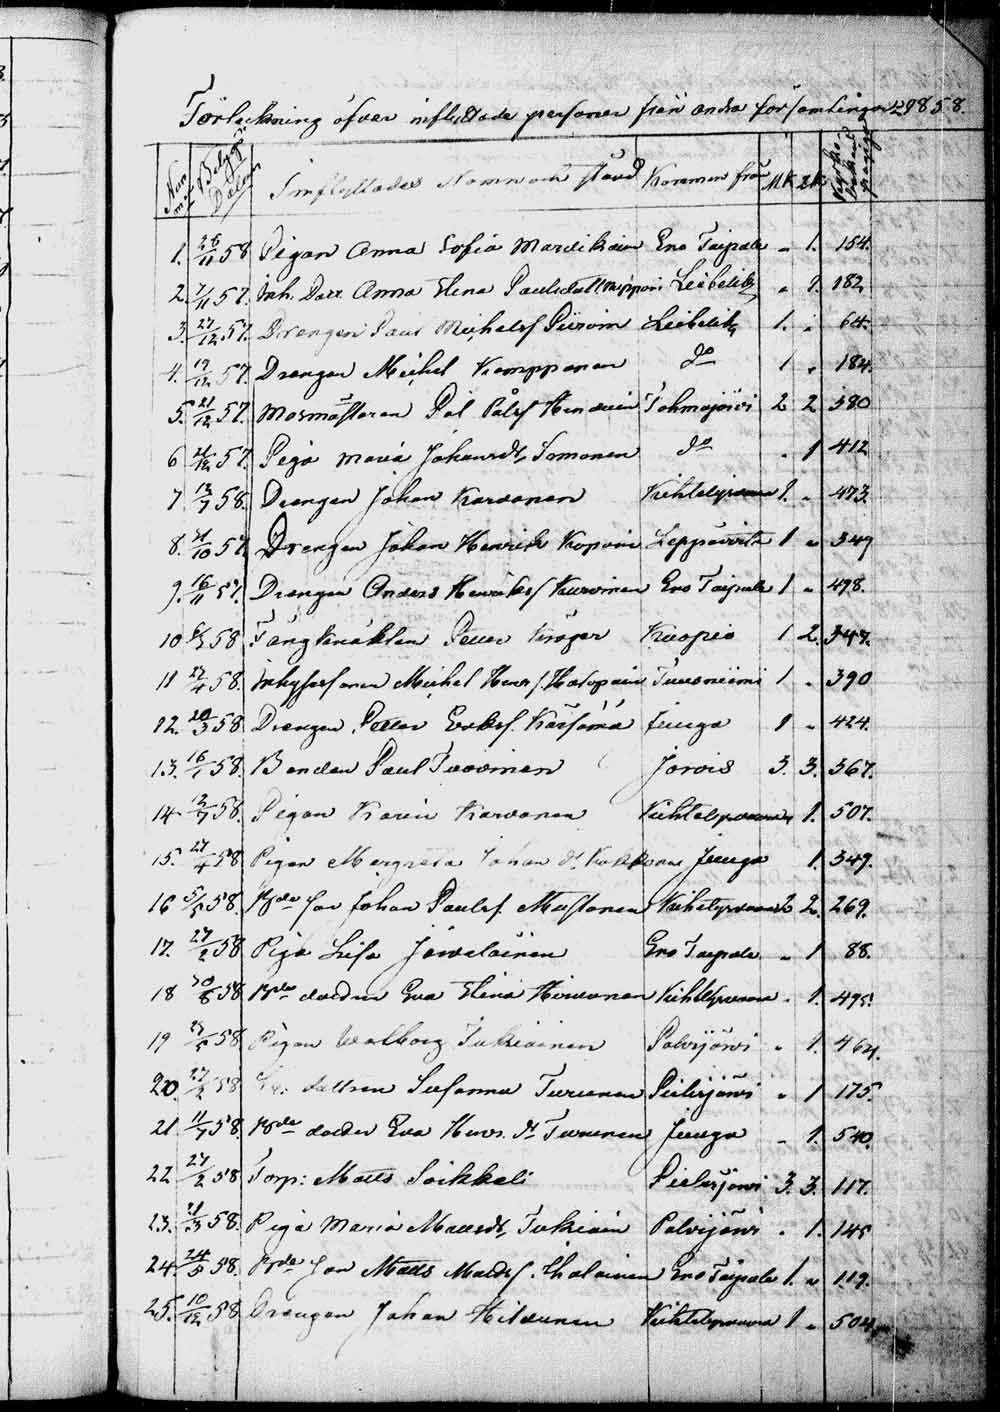 Förteckning öfver inflyttade personer från andra församlingar 1858.
Num mer Betygs Datum Inflyttades Namn och stånd Kommen från MK QK Kyrko bokens pagina
1. 26/11 58 Pigan Anna Sofia Mardikain Eno Taipale " 1. 154.
2. 7/11 57. Inh. Dott. Anna Elena Paulsdotter Libelits " 1. 182
3. 27/12 57. Drengen Paul Michelss Piiroin Libelits 1. " 64.
4. 19/12 57. Drengen Michel Kemppanen do 1 " 184.
5. 21/12 57. Masmästaren Pål Pålss Tohmajärvi 2 2 380
6 21/12 57. Piga Maria Johansdr Tomonen do " 1 412
7 13/7 58. Drengen Johan Karvonen Kihtelysvaara 1. " 473.
8. 21/10 57. Drengen Johan Henrik Kopoin Leppävirta 1 " 349
9. 16/11 57. Drengen Anders Henrikss Kurvinen Eno Taipale 1 " 498.
10 58 Fångknekten Petter Kröger Kuopio 1 2. 347.
11 27/4 58. Inhysesonen Michel Henrss Hatopain Tuusniemi 1 " 390
12. 20/3 58 Drengen Petter Erikss. Kärsämä Juuga 1 " 424.
13. 16/1 58. Bonden Paul Turvinen Jorois 3. 3. 367.
14. 13/7 58. Pigan Karin Karvonen Kihtelysvaara " 1. 507.
15. 27/4 58 Pigan Margreta Johans dr Juuga 1. 349.
16 5/5 58. Bde son Johan Paulss. Mustonen Kihtelysvaara 2 2. 269.
17. 27/2 58 Piga Lisa Jäveläinen Eno Taipale " 1 88.
18 30/8 58 Bde dottren Eva Elena Hirvonen Kihtelysvaara " 1. 495.
19 27/5 58 Pigan Walborg Tukiainen Polvijärvi " 1. 464.
20. 27/2 58 dottren Susanna Turunen Pielisjärvi " 1 175.
21 11/7 58. Bde dotter Eva Henrs. dr Turunen Juuga " 1. 540.
22 27/2 58 Torp: Matts Soikkeli Pielisjärvi 3. 3. 117.
23. 21/3 58. Piga Maria Mattsdr Tukiain Polvijärvi " 1. 145
24. 24/5 58. Bde son Matts Mattss. Iholainen Eno Taipale 1. " 119.
25. 10/12 58 Drengen Johan Hiltunen Kihtelysvaara 1 " 504.